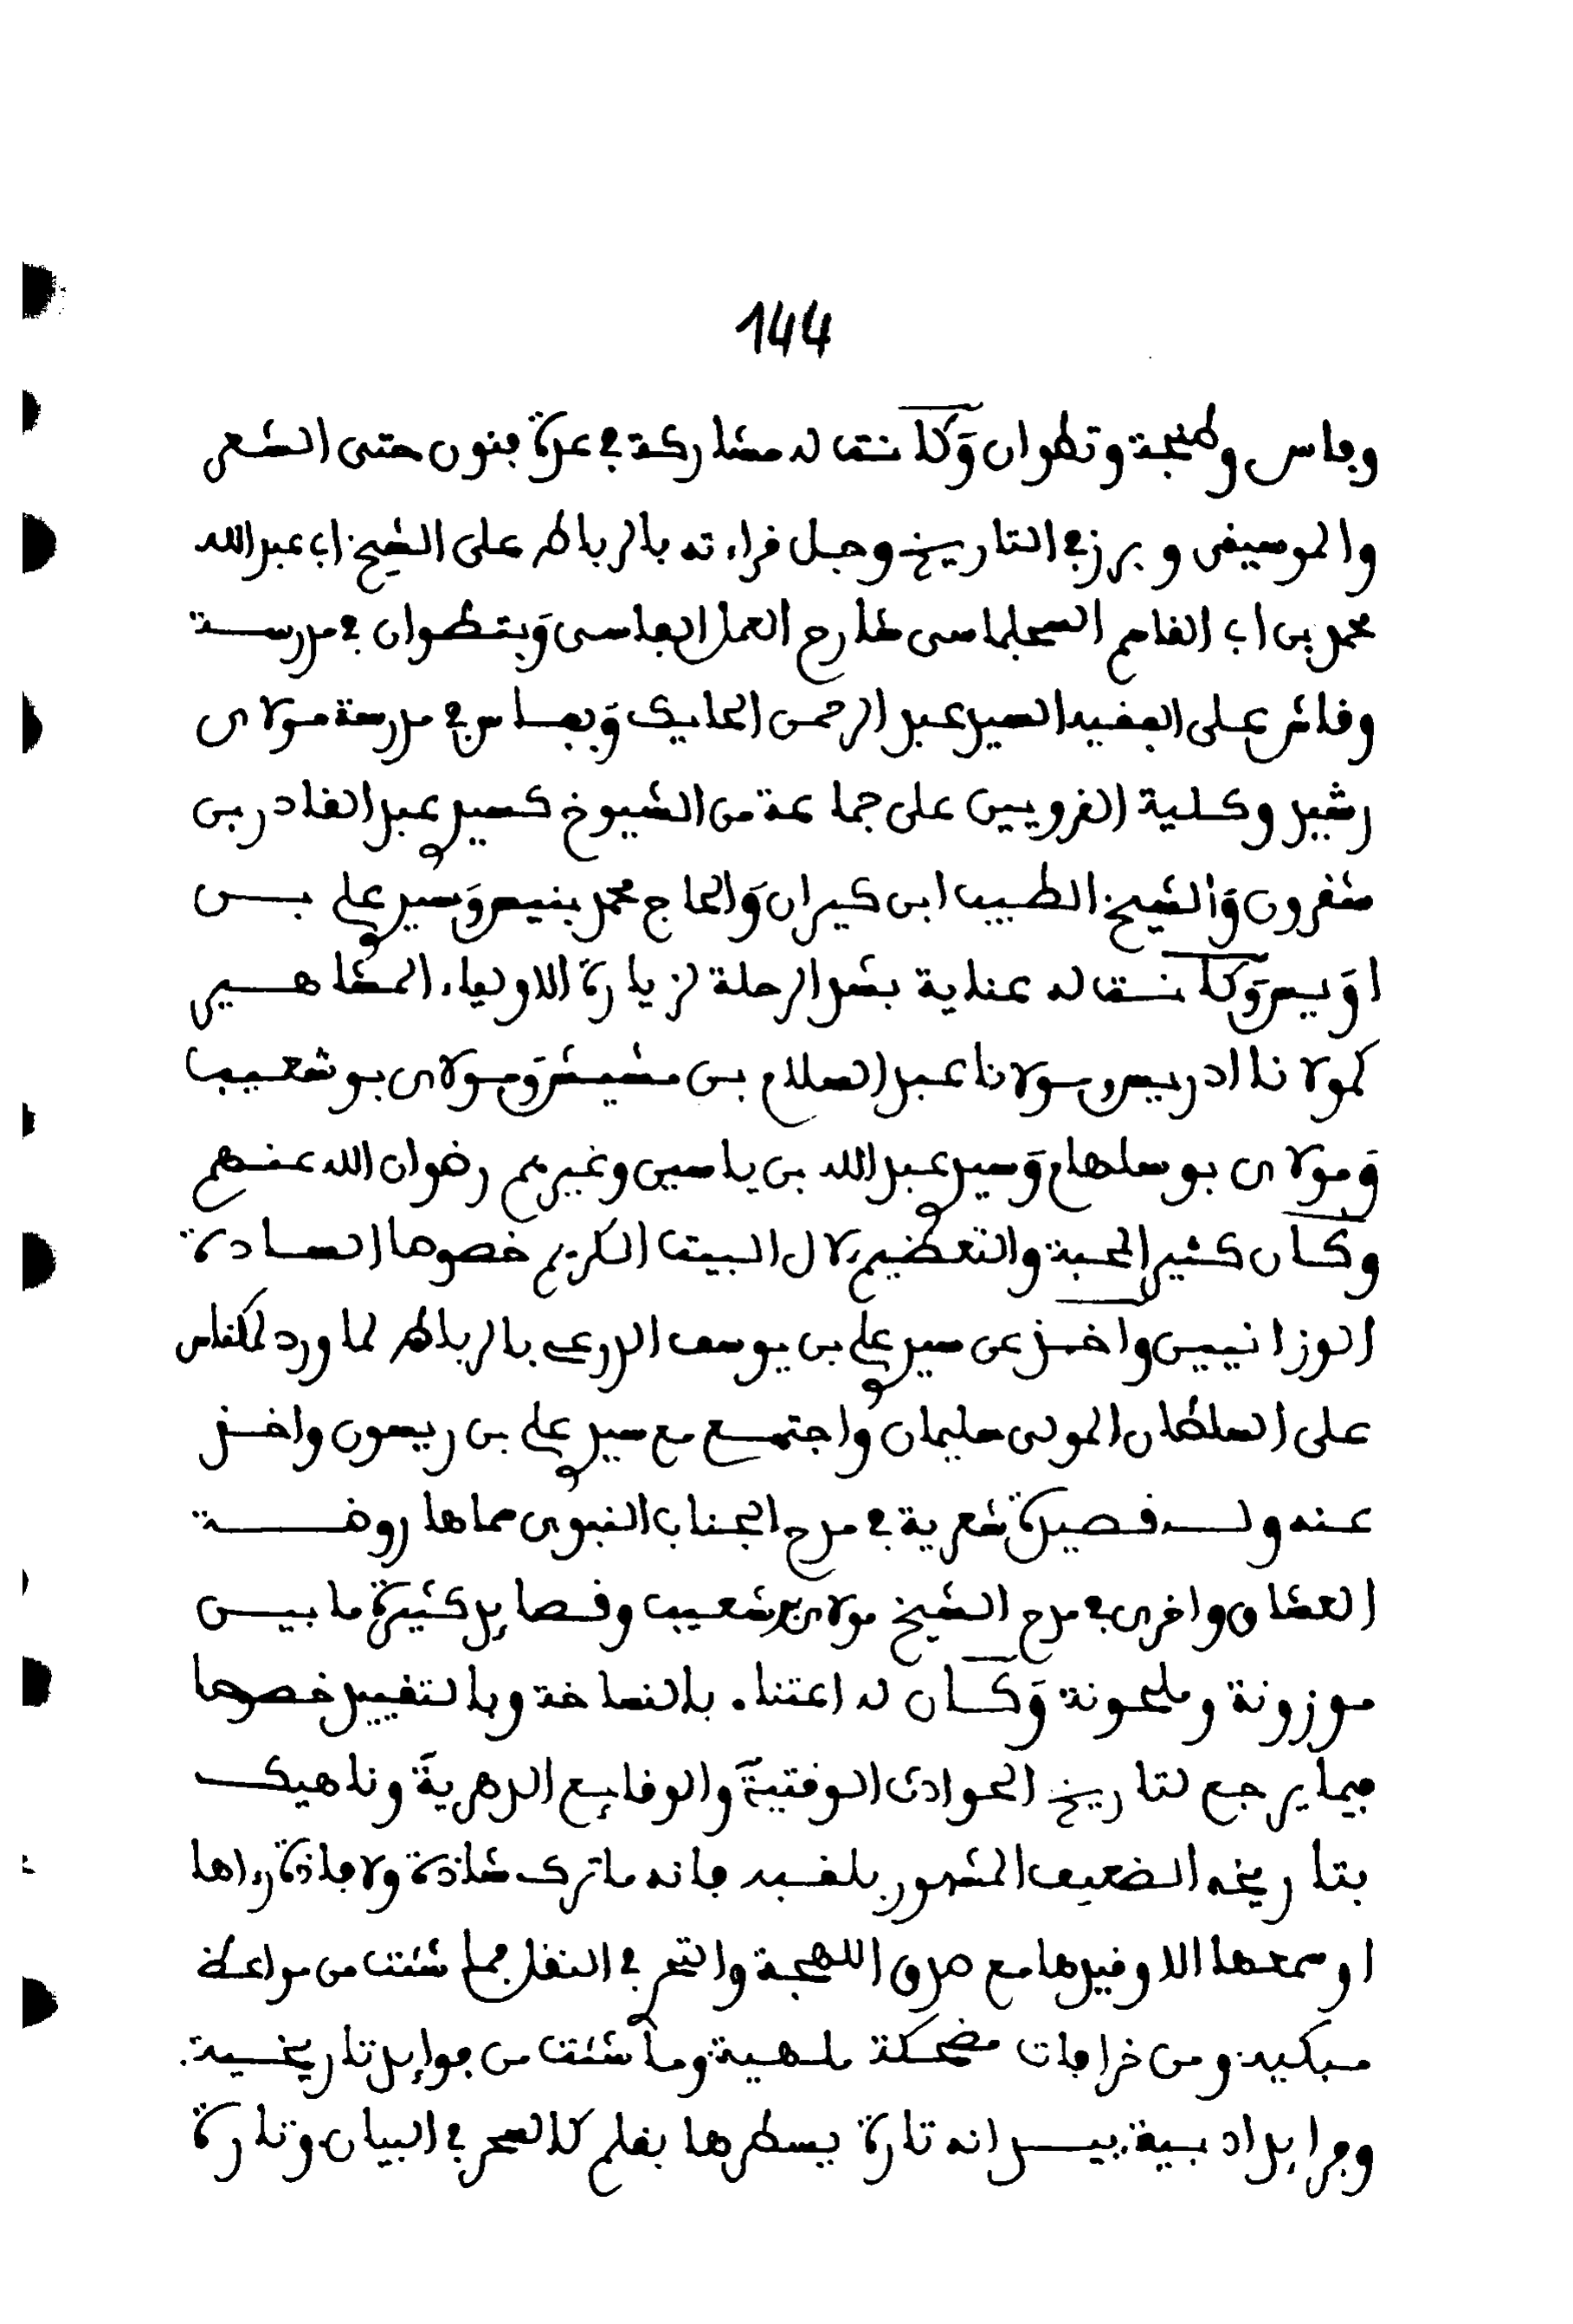 144
وفاس وطنجة وتطوان وكانت له مشاركة في عدة فنون حتى الشعر
والموسيقى وبرز في التاريخ وجل قراءته بالرباط على الشيخ ابي عبد الله
محمد بن ابي القاسم السجلماسى شارح العمل الفاسى وبتطوان في مدرسة
وقاش على الفقيه السيد عبد الرحمن الحايك وبفاس في مدرسة مولاى
رشيد وكلية القرويين على جماعة من الشيوخ كسيد عبد القادر بن
شقرون والشيخ الطيب ابن كيران والحاج محمد بنيس وسيد علي بن
اويس وكانت له عناية بشد الرحلة لزيارة الاولياء المشاهير
كمولانا ادريس ومولانا عبد السلام بن مشيش ومولاى بوشعيب
ومولاى بوسلهام وسيد عبد الله بن ياسين وغيرهم رضوان الله عنهم
وكان كثير المحبة والتعظيم لال البيت الكريم خصوصا السادة
الوزانيين واخذ عن سيد علي بن يوسف الدرعي بالرباط لما ورد لمكناس
على السلطان المولى سليمان واجتمع مع سيد علي بن ريسون واخذ
عنه وله قصيدة شعرية في مدح الجناب النبوى سماها روضة
العشاق واخرى في مدح الشيخ مولاى بوشعيب وقصايد كثيرة ما بين
موزونة وملحونة وكان له اعتناء بالنساخة وبالتقييد خصوصا
فيما يرجع لتاريخ الحوادث الوقتية والوقايع الدهرية وناهيك
بتاريخه الضعيف المشهور بلقبه فانه ما ترك شاذة ولا فاذة رءاها
او سمعها الا وقيدها مع صدق اللهجة والتحر في النقل فما شئت من مواعظ
مبكيه ومن خرافات مضحكة ملهية وما شئت من فوايد تاريخية
وفرايد ادبية بيد انه تارة يسطرها بقلم كالسحر في البيان وتارة